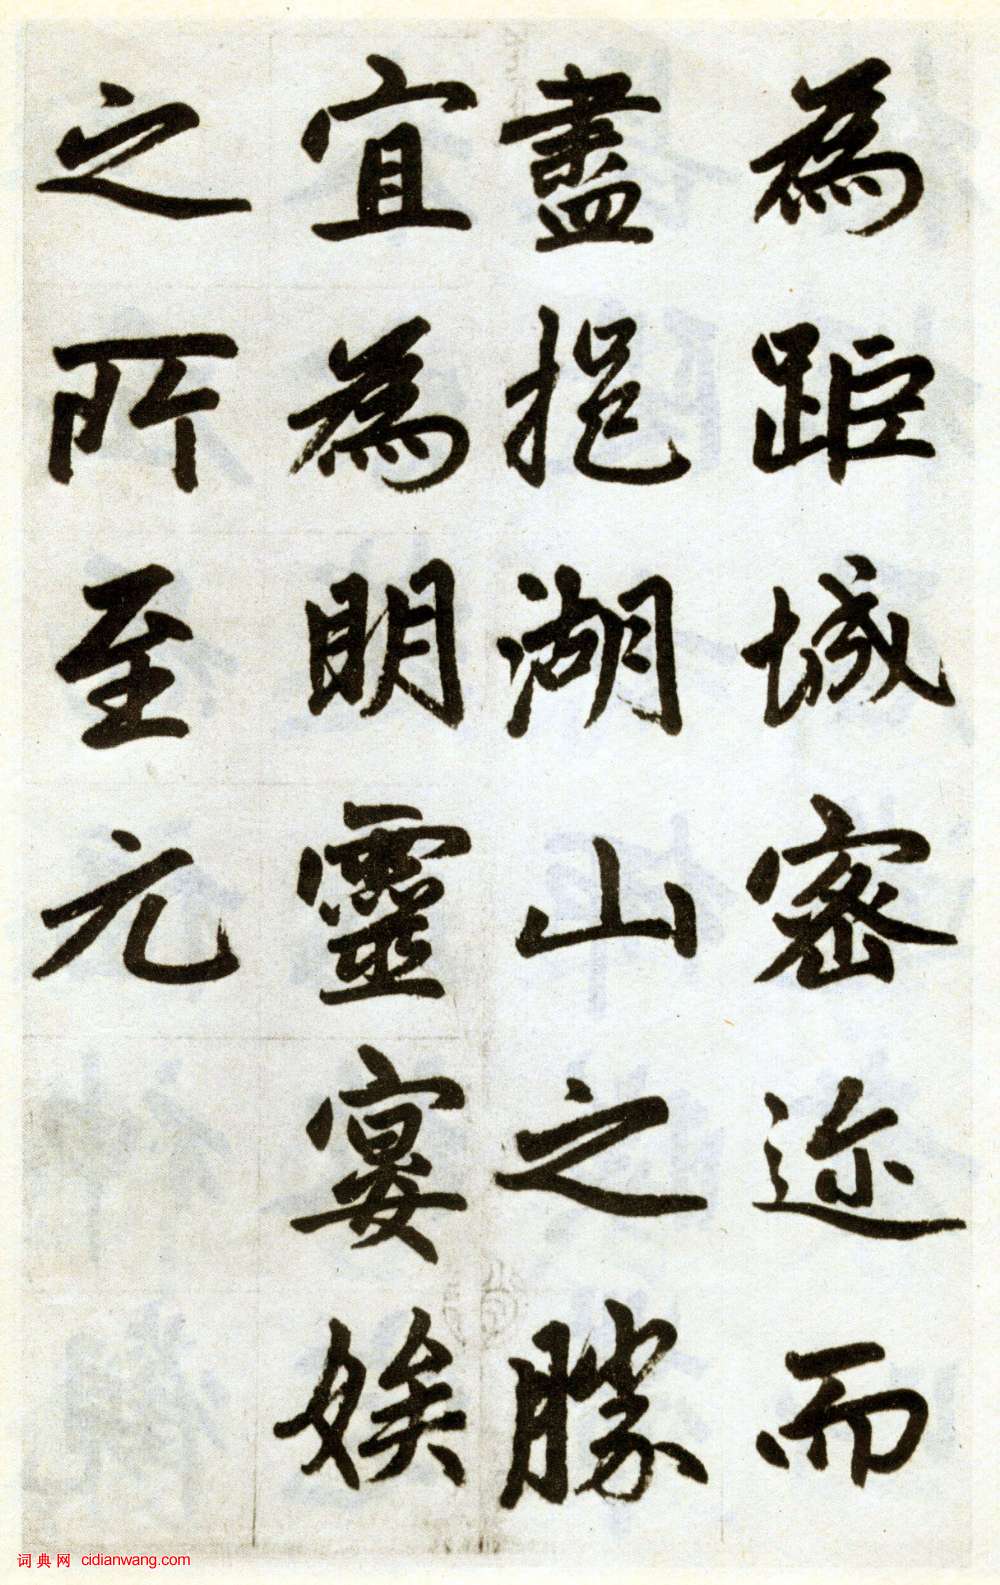 為距城密迩而
盡挹湖山之勝
宜為明靈宴娭
之所至元
词典网 cidianwang.com